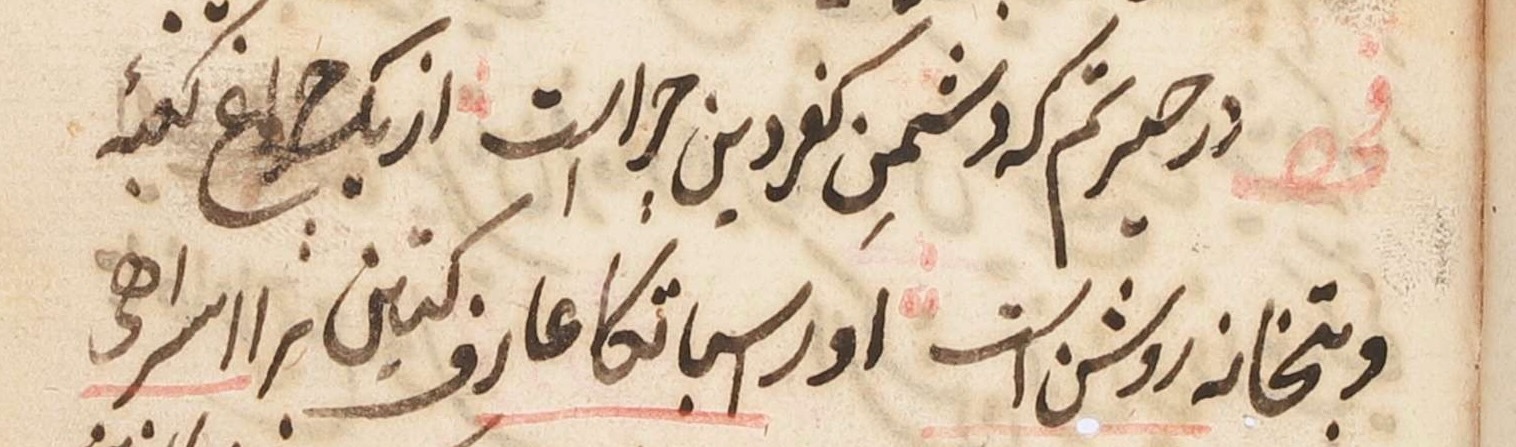 در حیرتم که دشمنِ کفر و دین چراست از یک چراغ کعبهٔ
و بتخانه روشن است اور اس بات کا عارف کتیں برا اسرا هی